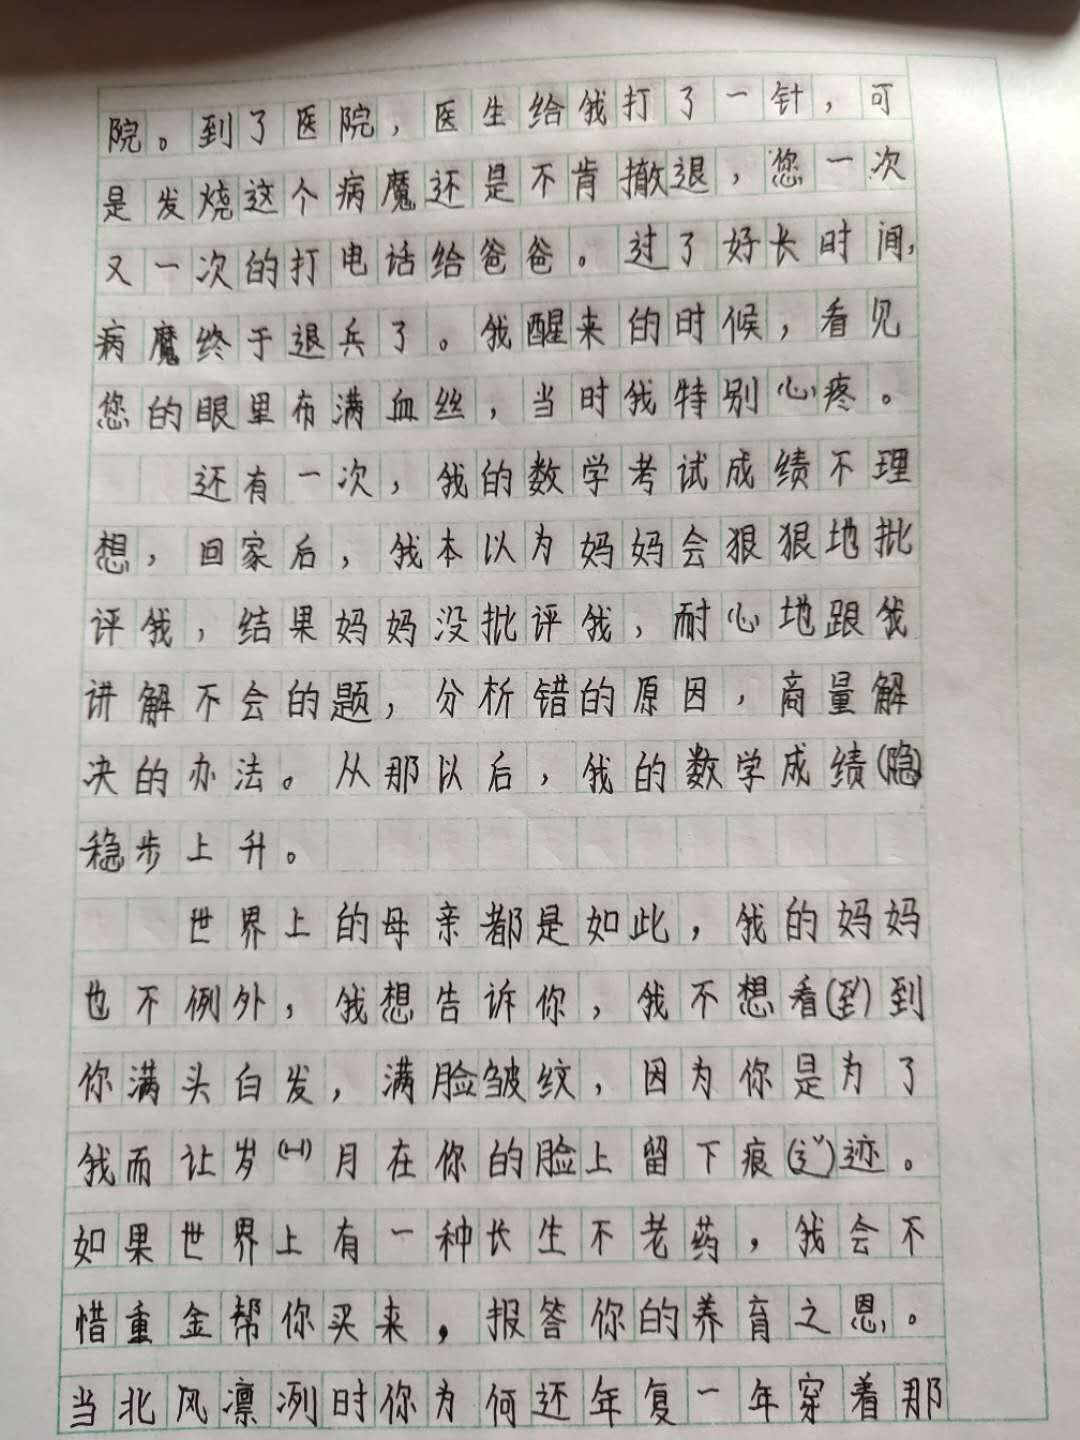 院。到了医院，医生给我打了一针，可
是发烧这个病魔还是不肯撤退，您一次
又一次的打电话给爸爸。过了好长时间，
病魔终于退兵了。我醒来的时候，看见
您的眼里布满血丝，当时我特别心疼。
还有一次，我的数学考试成绩不理
想，回家后，我本以为妈妈会狠狠地批
评我，结果妈妈没批评我，耐心地跟我
讲解不会的题，分析错的原因，商量解
决的办法。从那以后，我的数学成绩(隐)
稳步上升。
世界上的母亲都是如此，我的妈妈
也不例外，我想告诉你，我不想看(到)到
你满头白发，满脸皱纹，因为你是为了
我而让岁月在你的脸上留下痕迹。
如果世界上有一种长生不老药，我会不
惜重金帮你买来，报答你的养育之恩。
当北风凛冽时你为何还年复一年穿着那